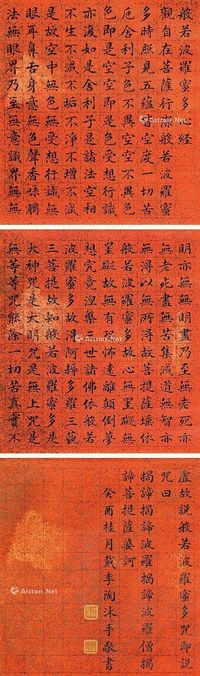 般若波羅蜜多心經
觀自在菩薩行深般若波羅蜜
多時照見五蘊皆空度一切苦
厄舍利子色不異空空不異色
色即是空空即是色受想行識
亦復如是舍利子是諸法空相
不生不滅不垢不淨不增不減
是故空中無色無受想行識無
眼耳鼻舌身意無色聲香味觸
法無眼界乃至無意識界無無
明亦無無明盡乃至無老死亦
無老死盡無苦集滅道無智亦
無得以無所得故菩提薩埵依
般若波羅蜜多故心無罣礙無
罣礙故無有恐怖遠離顛倒夢
想究竟涅槃三世諸佛依般若
波羅蜜多故得阿耨多羅三藐
三菩提故知般若波羅蜜多是
大神咒是大明咒是無上咒是
無等等咒能除一切苦真實不
虛故說般若波羅蜜多咒即說
咒曰
揭諦揭諦波羅揭諦波羅僧揭
諦菩提薩婆訶
癸酉桂月戴季陶沐手敬書